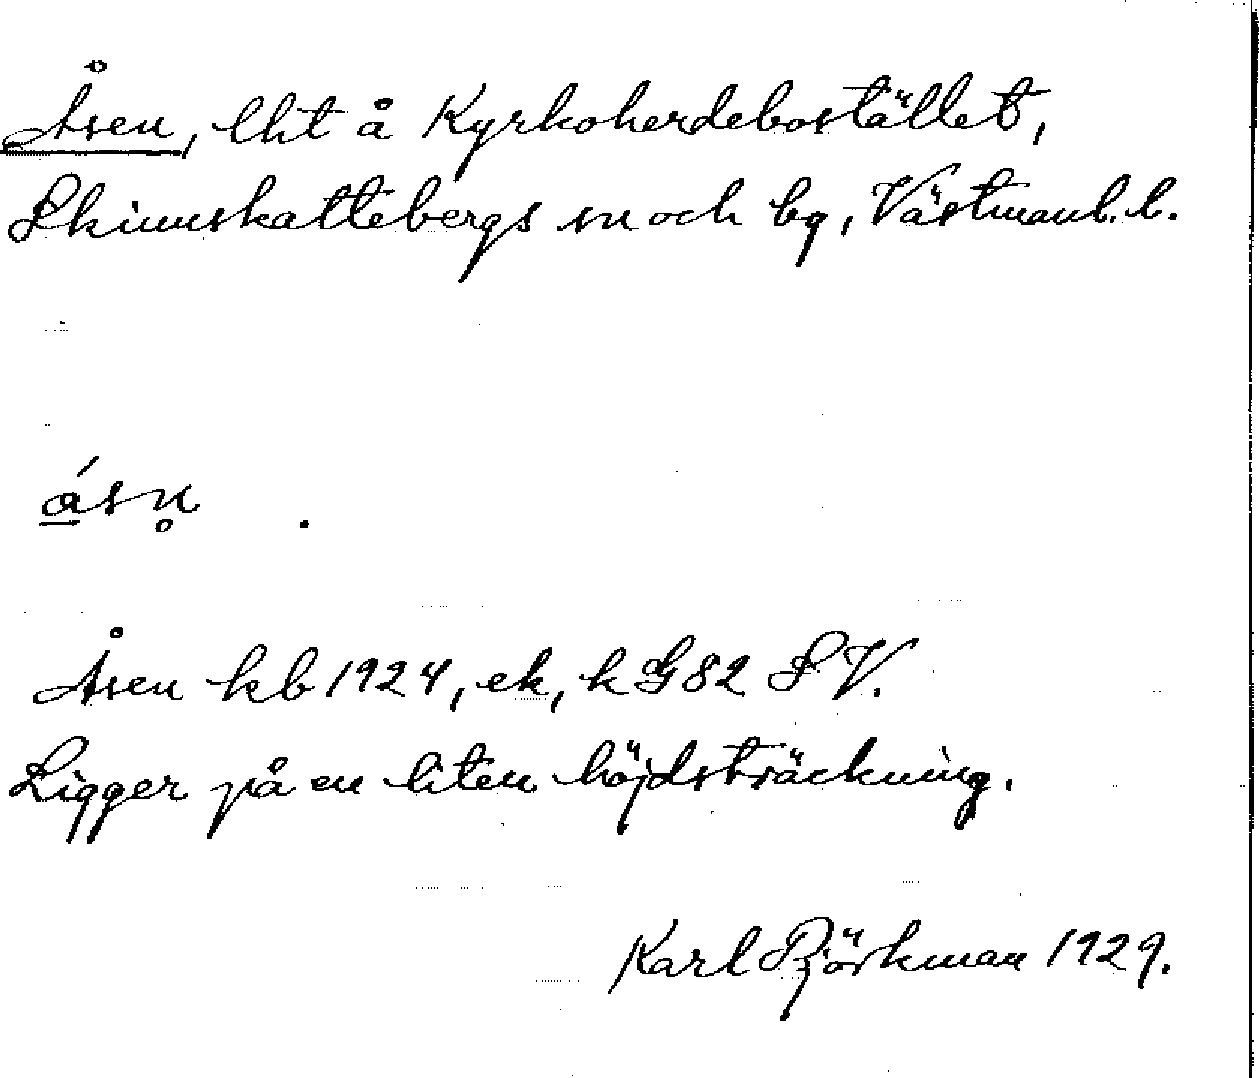 Åsen, lht å Kyrkoherdebostället,
Skinnskattebergs sn och bg, Västmanl. l.
ásn̥
Åsen kb 1924, ek, k G82 SV.
Ligger på en liten höjdsträckning.
Karl Björkman 1929.